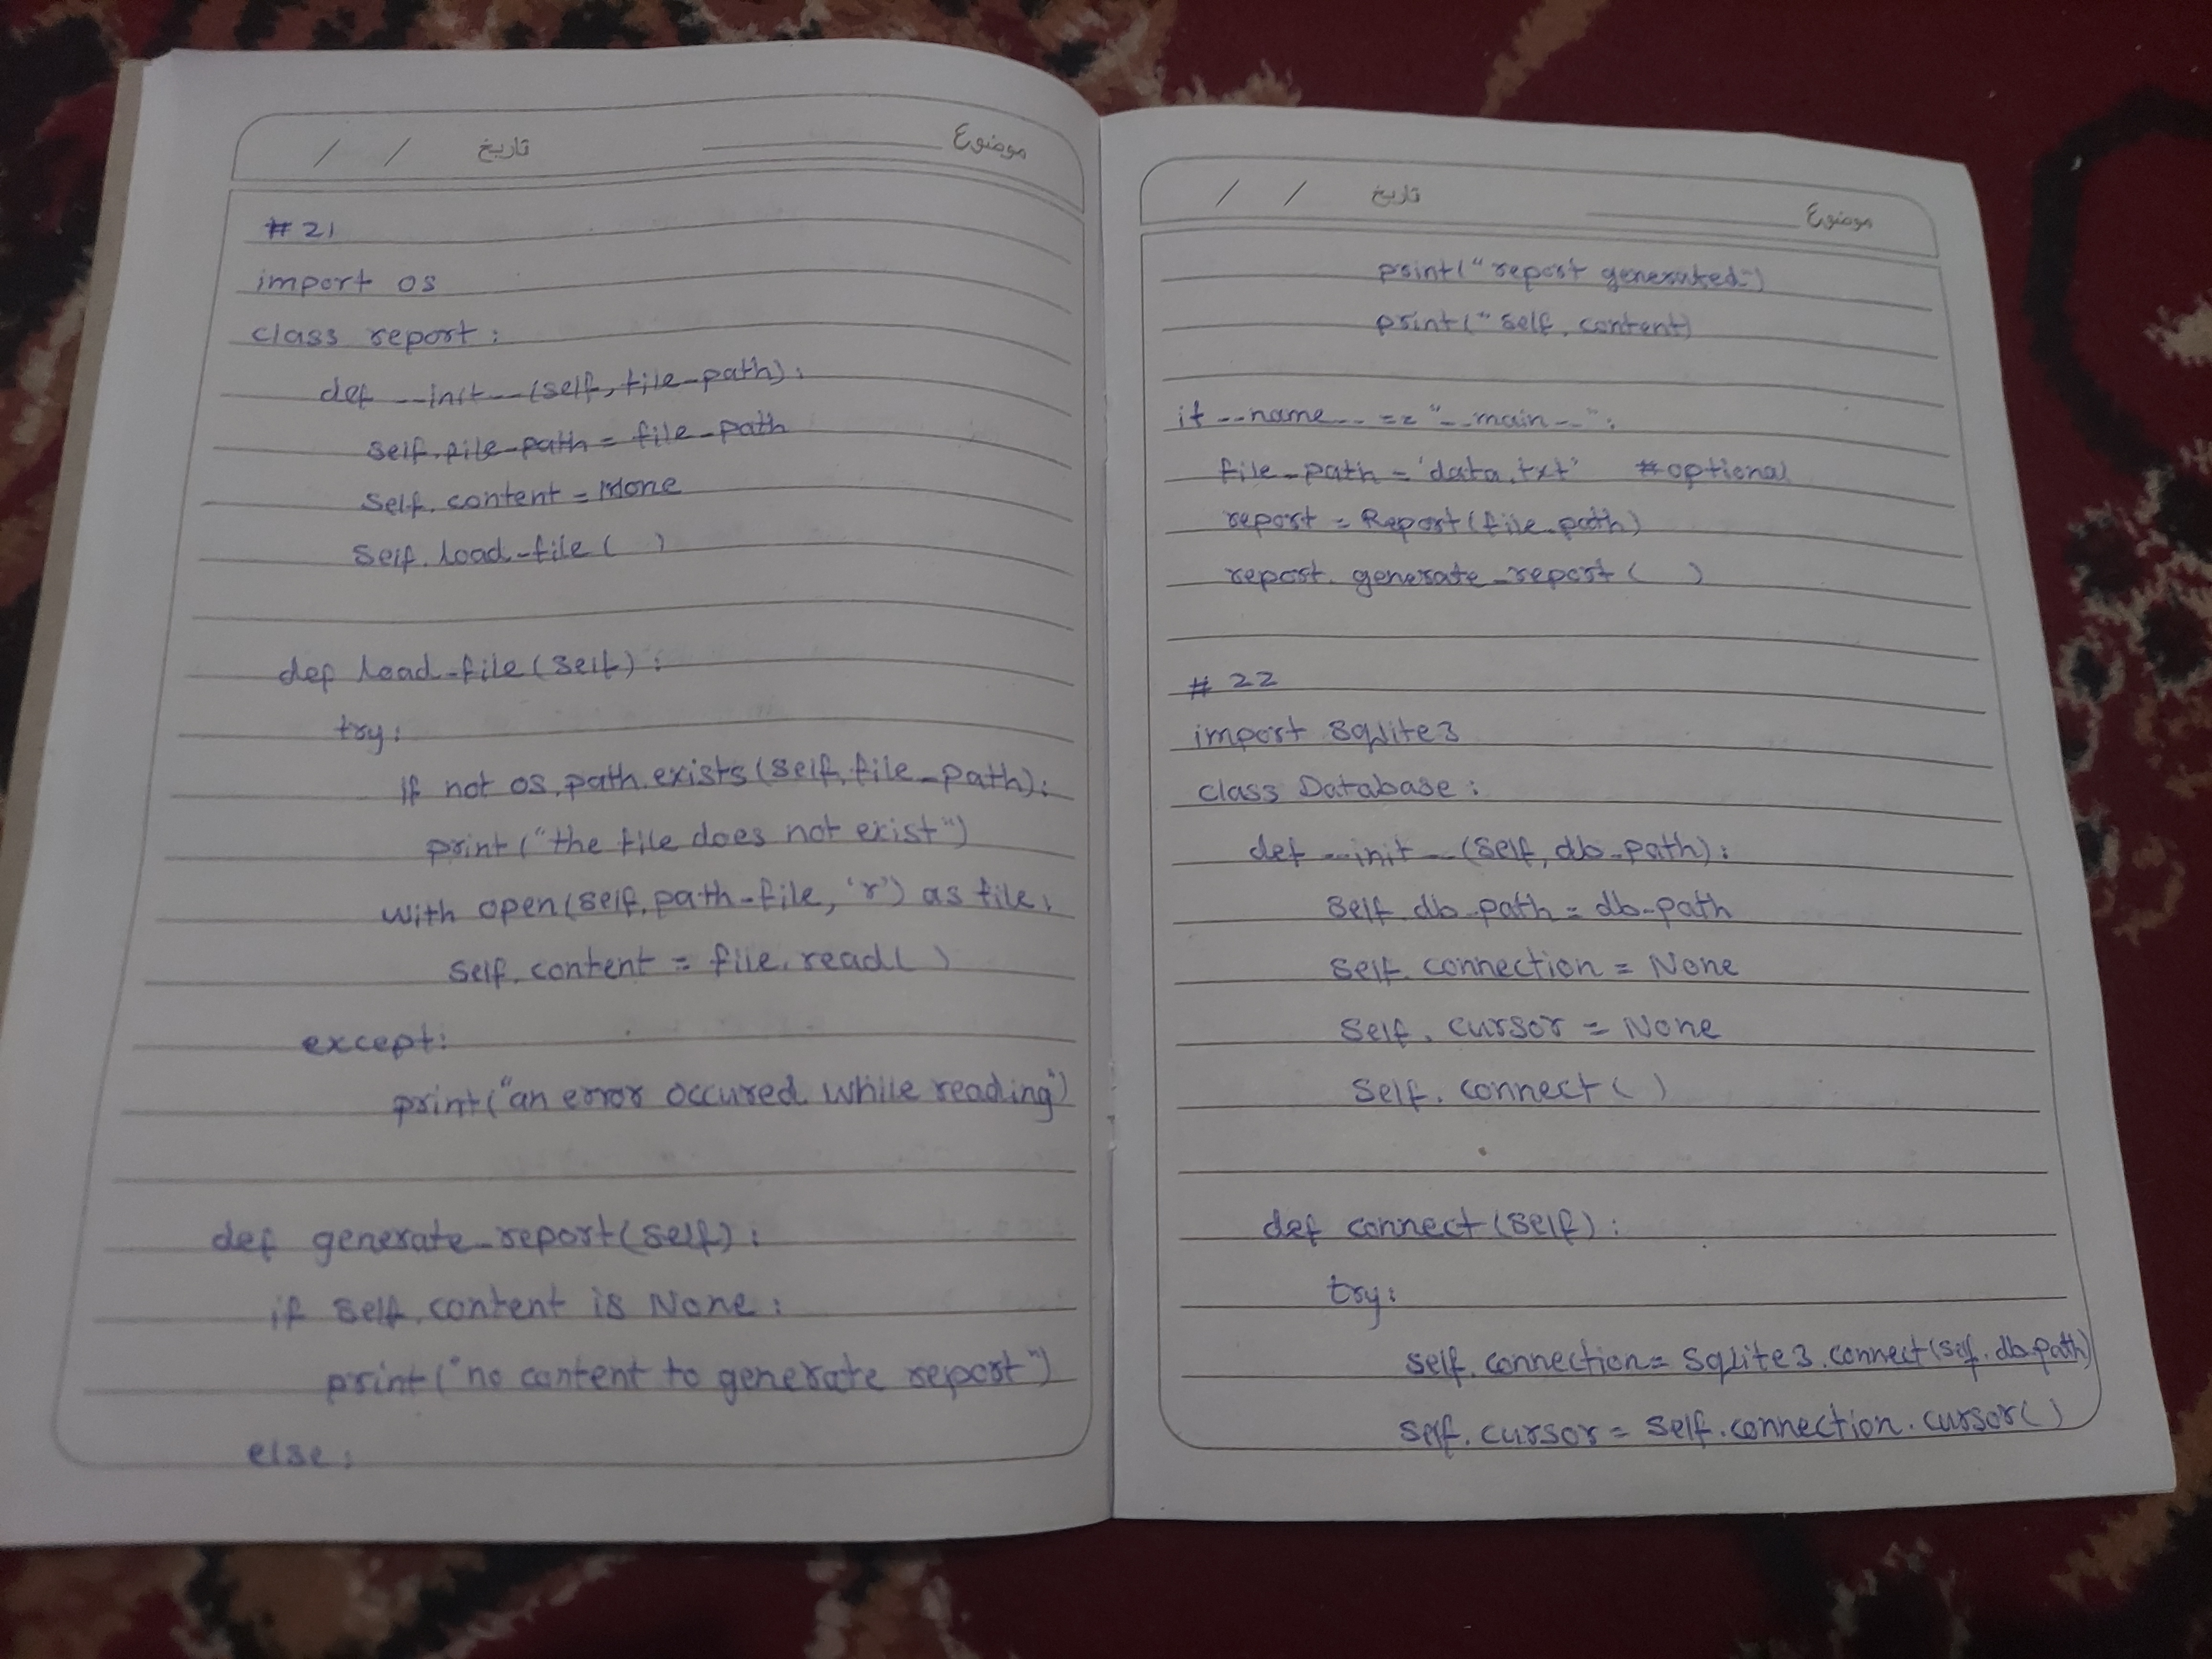 / / تاریخ موضوع
#21
import os
class report:
def __init__(self, file_path):
self.file_path = file_path
self.content = None
self.load_file( )
def load_file(self):
try:
if not os.path.exists(self.file_path):
print("the file does not exist")
with open(self.path_file, 'r') as file:
self.content = file.read( )
except:
print("an error occured while reading")
def generate_report(self):
if self.content is None:
print("no content to generate report")
else:
/ / تاریخ موضوع
print("report generated=")
print("self.content)
if __name__ == "__main__":
file_path = 'data.txt' #optional
report = Report(file_path)
report.generate_report( )
#22
import sqlite3
class Database:
def __init__(self, db_path):
self.db_path = db_path
self.connection = None
self.cursor = None
self.connect( )
def connect(self):
try:
self.connection = sqlite3.connect(self.db_path)
self.cursor = self.connection.cursor( )